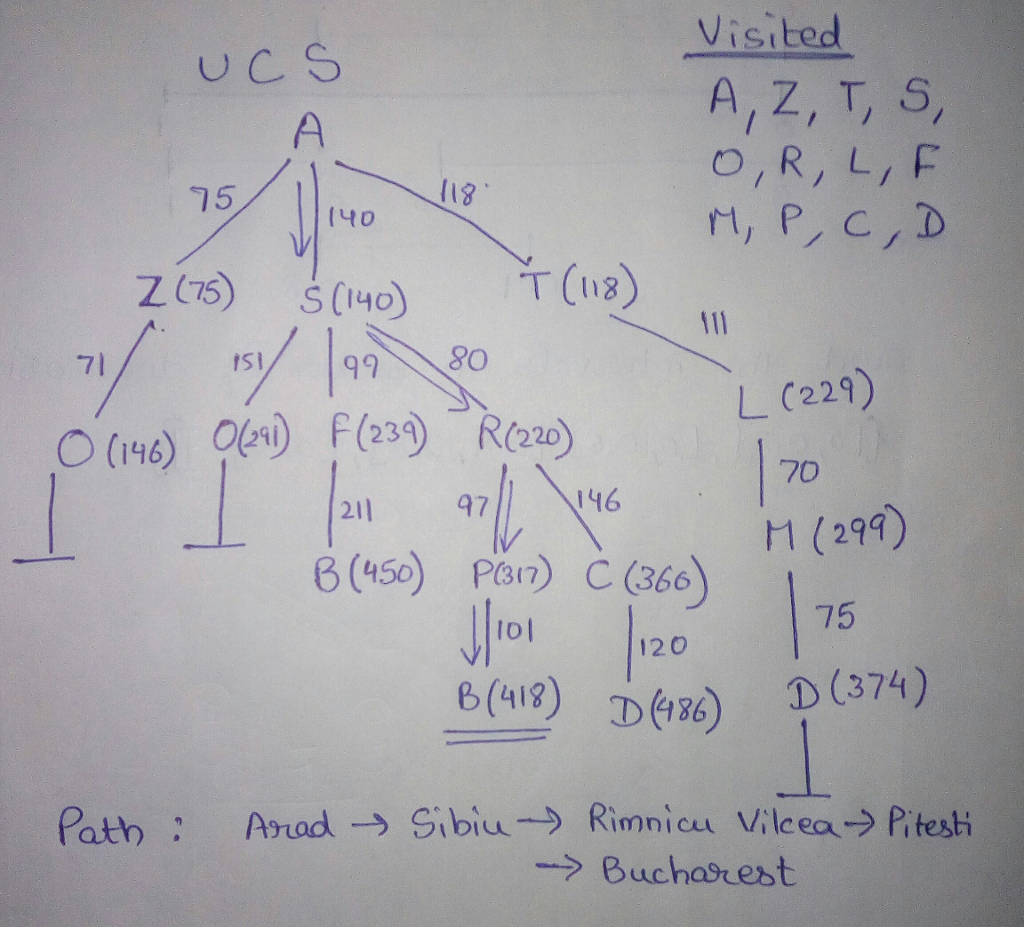 UCS
Visited
A, Z, T, S,
O, R, L, F
M, P, C, D
A
75 140 118
Z(75) S(140) T(118)
71 151 99 80 111
O(146) O(291) F(239) R(220) L(229)
211 97 146 70
B(450) P(317) C(366) M(299)
101 120 75
B(418) D(486) D(374)
Path : Arad → Sibiu → Rimnicu Vilcea → Pitesti
→ Bucharest